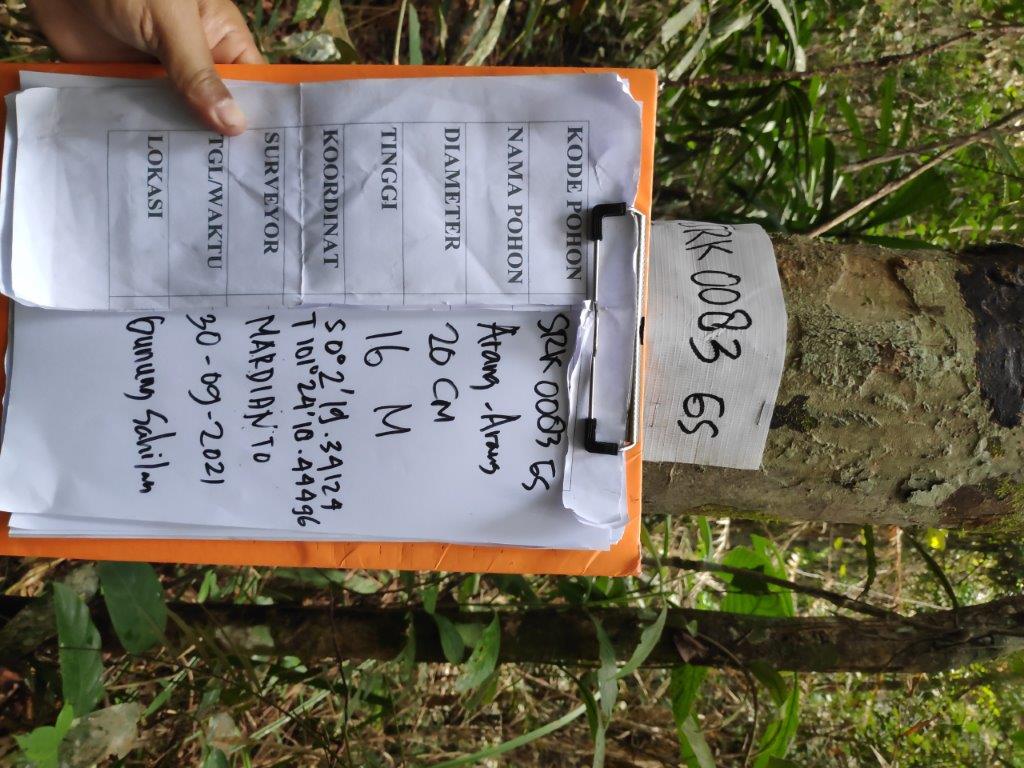 KODE POHON SRK 0083 GS
NAMA POHON Arang-Arang
DIAMETER 20 CM
TINGGI 16 M
KOORDINAT S 0° 2' 19.34124
T 101° 24' 10.44496
SURVEYOR MARDIANTO
TGL/WAKTU 30-09-2021
LOKASI Gunung Sahilan
SRK 0083 GS